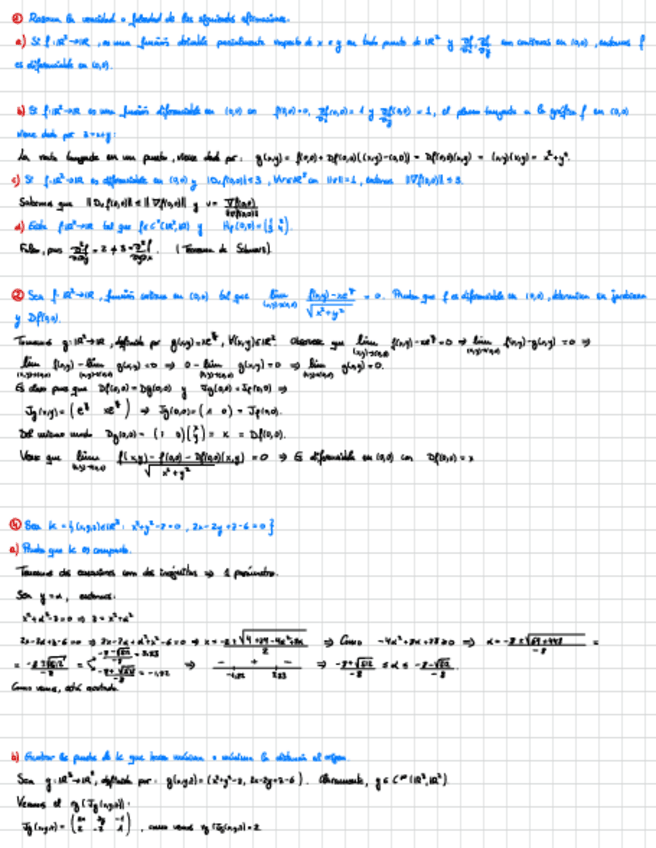 ① Razona la veracidad o falsedad de las siguientes afirmaciones.
a) Si f: ℝ²→ℝ, es una función derivable parcialmente respecto de x e y en todo punto de ℝ² y ∂f/∂x, ∂f/∂y son continuas en (0,0), entonces f
es diferenciable en (0,0).
b) Si f: ℝ²→ℝ es una función diferenciable en (0,0) con f(0,0)=0, ∂f/∂x(0,0)=1 y ∂f/∂y(0,0)=1, el plano tangente a la gráfica f en (0,0)
viene dado por z=x+y:
La recta tangente en un punto, viene dad por: g(x,y) = f(0,0) + Df(0,0)((x,y)-(0,0)) = Df(0,0)(x,y) = (x,y)(x,y) = x²+y².
c) Si f: ℝ²→ℝ es diferenciable en (0,0) y |Dᵥf(0,0)| ≤ 3, ∀v∈ℝ² con ||v||=1, entonces ||∇f(0,0)|| ≤ 3.
Sabemos que ||Dᵥf(0,0)|| ≤ ||∇f(0,0)|| y v = ∇f(0,0)/||∇f(0,0)||
d) Existe f: ℝ²→ℝ tal que f∈C²(ℝ²,ℝ) y
Falso, pues ∂²f/∂x∂y = 2 ≠ 3 = ∂²f/∂y∂x. (Teorema de Schwarz)
② Sea f: ℝ²→ℝ, función continua en (0,0) tal que lim (x,y)→(0,0) = 0. Prueba que f es diferenciable en (0,0), determina su jacobiana
y Df(0,0).
Tomamos g: ℝ²→ℝ, definida por g(x,y)=xeʸ, ∀(x,y)∈ℝ². Observar que lim f(x,y)-xeʸ = 0 ⇒ lim f(x,y)-g(x,y) = 0 ⇒
lim f(x,y) - lim g(x,y) = 0 ⇒ 0 - lim g(x,y) = 0 ⇒ lim g(x,y) = 0.
Es claro pues que Df(0,0) = Dg(0,0) y Jg(0,0) = Jf(0,0) ⇒
Jg(x,y) = (eʸ xeʸ) ⇒ Jg(0,0) = (1 0) = Jf(0,0).
Del mismo modo Dg(0,0) = (1 0)(x y) = x = Df(0,0).
Veamos que lim (x,y)→(0,0) (f(x,y) - f(0,0) - Df(0,0)(x,y)) / √(x²+y²) = 0 ⇒ Es diferenciable en (0,0) con Df(0,0) = x
④ Sea K = {(x,y,z)∈ℝ³: x²+y²-z=0, 2x-2y+z-6=0}
a) Prueba que K es compacto.
Tenemos dos ecuaciones con dos incógnitas ⇒ 1 parámetro.
Sea y=α, entonces:
x²+α²-z=0 ⇒ z = x²+α²
2x-2α+z-6=0 ⇒ 2x-2α+α²+x²-6=0 ⇒ ⇒ Como ⇒
Como vemos, está acotado.
b) Encontrar los puntos de K que hacen máxima o mínima la distancia al origen.
Sea g: ℝ³→ℝ², definida por: g(x,y,z) = (x²+y²-z, 2x-2y+z-6). Claramente, g∈C^∞(ℝ³,ℝ²)
Veamos el rg(Jg(x,y,z)):
Jg(x,y,z) = (2x 2y -1 / 2 -2 1), como vemos rg(Jg(x,y,z)) = 2